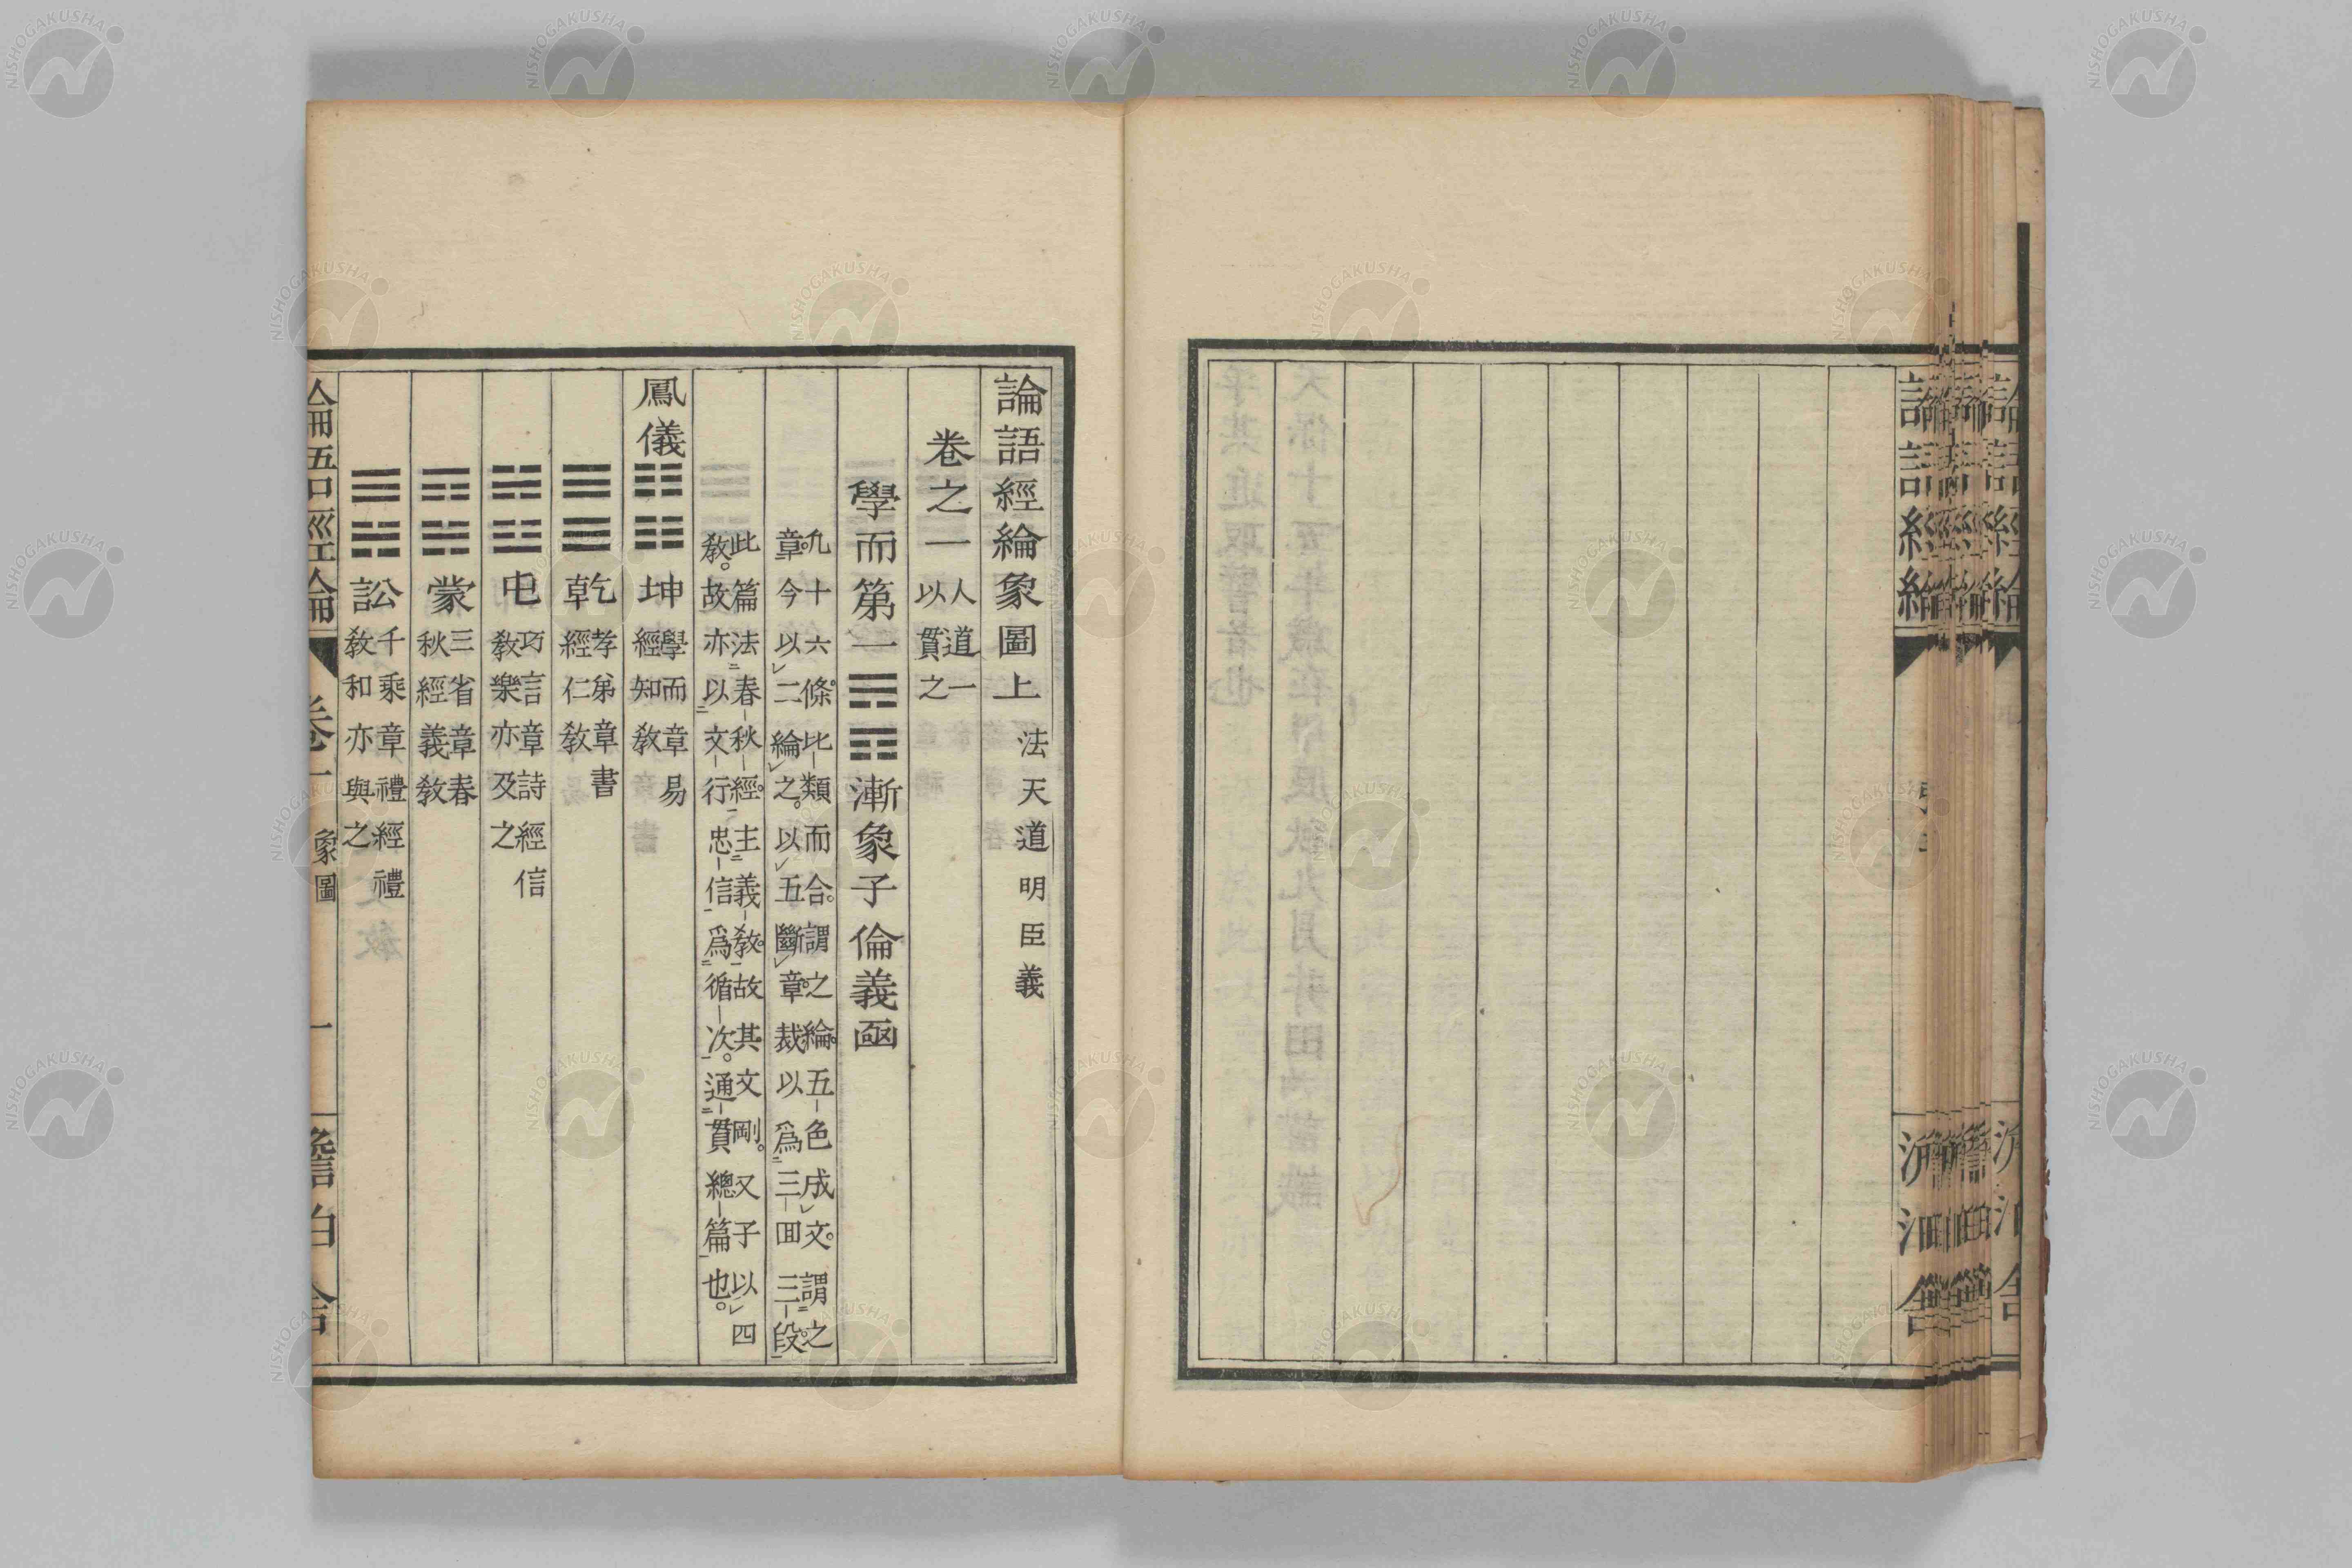 論語經綸象圖上 法天道明臣義
卷之一 人道一以貫之
學而第一䷴漸象子倫義函
九十六條。比類而合。謂之綸。五色成文。謂之
章。今以二綸之。以五斷章。裁以爲三回三段。
此篇法春秋經。主義敎。故其文剛。又子以四
敎。故亦以文行忠信爲循次。通貫總篇也。
鳳儀䷁坤 學而章易經知敎
䷀乾 孝弟章書經仁敎
䷂屯 巧言章詩經信敎樂亦及之
䷃蒙 三省章春秋經義敎
䷅訟 千乘章禮經禮敎和亦與之
論語經綸 卷一 象圖 一
NISHOGAKUSHA